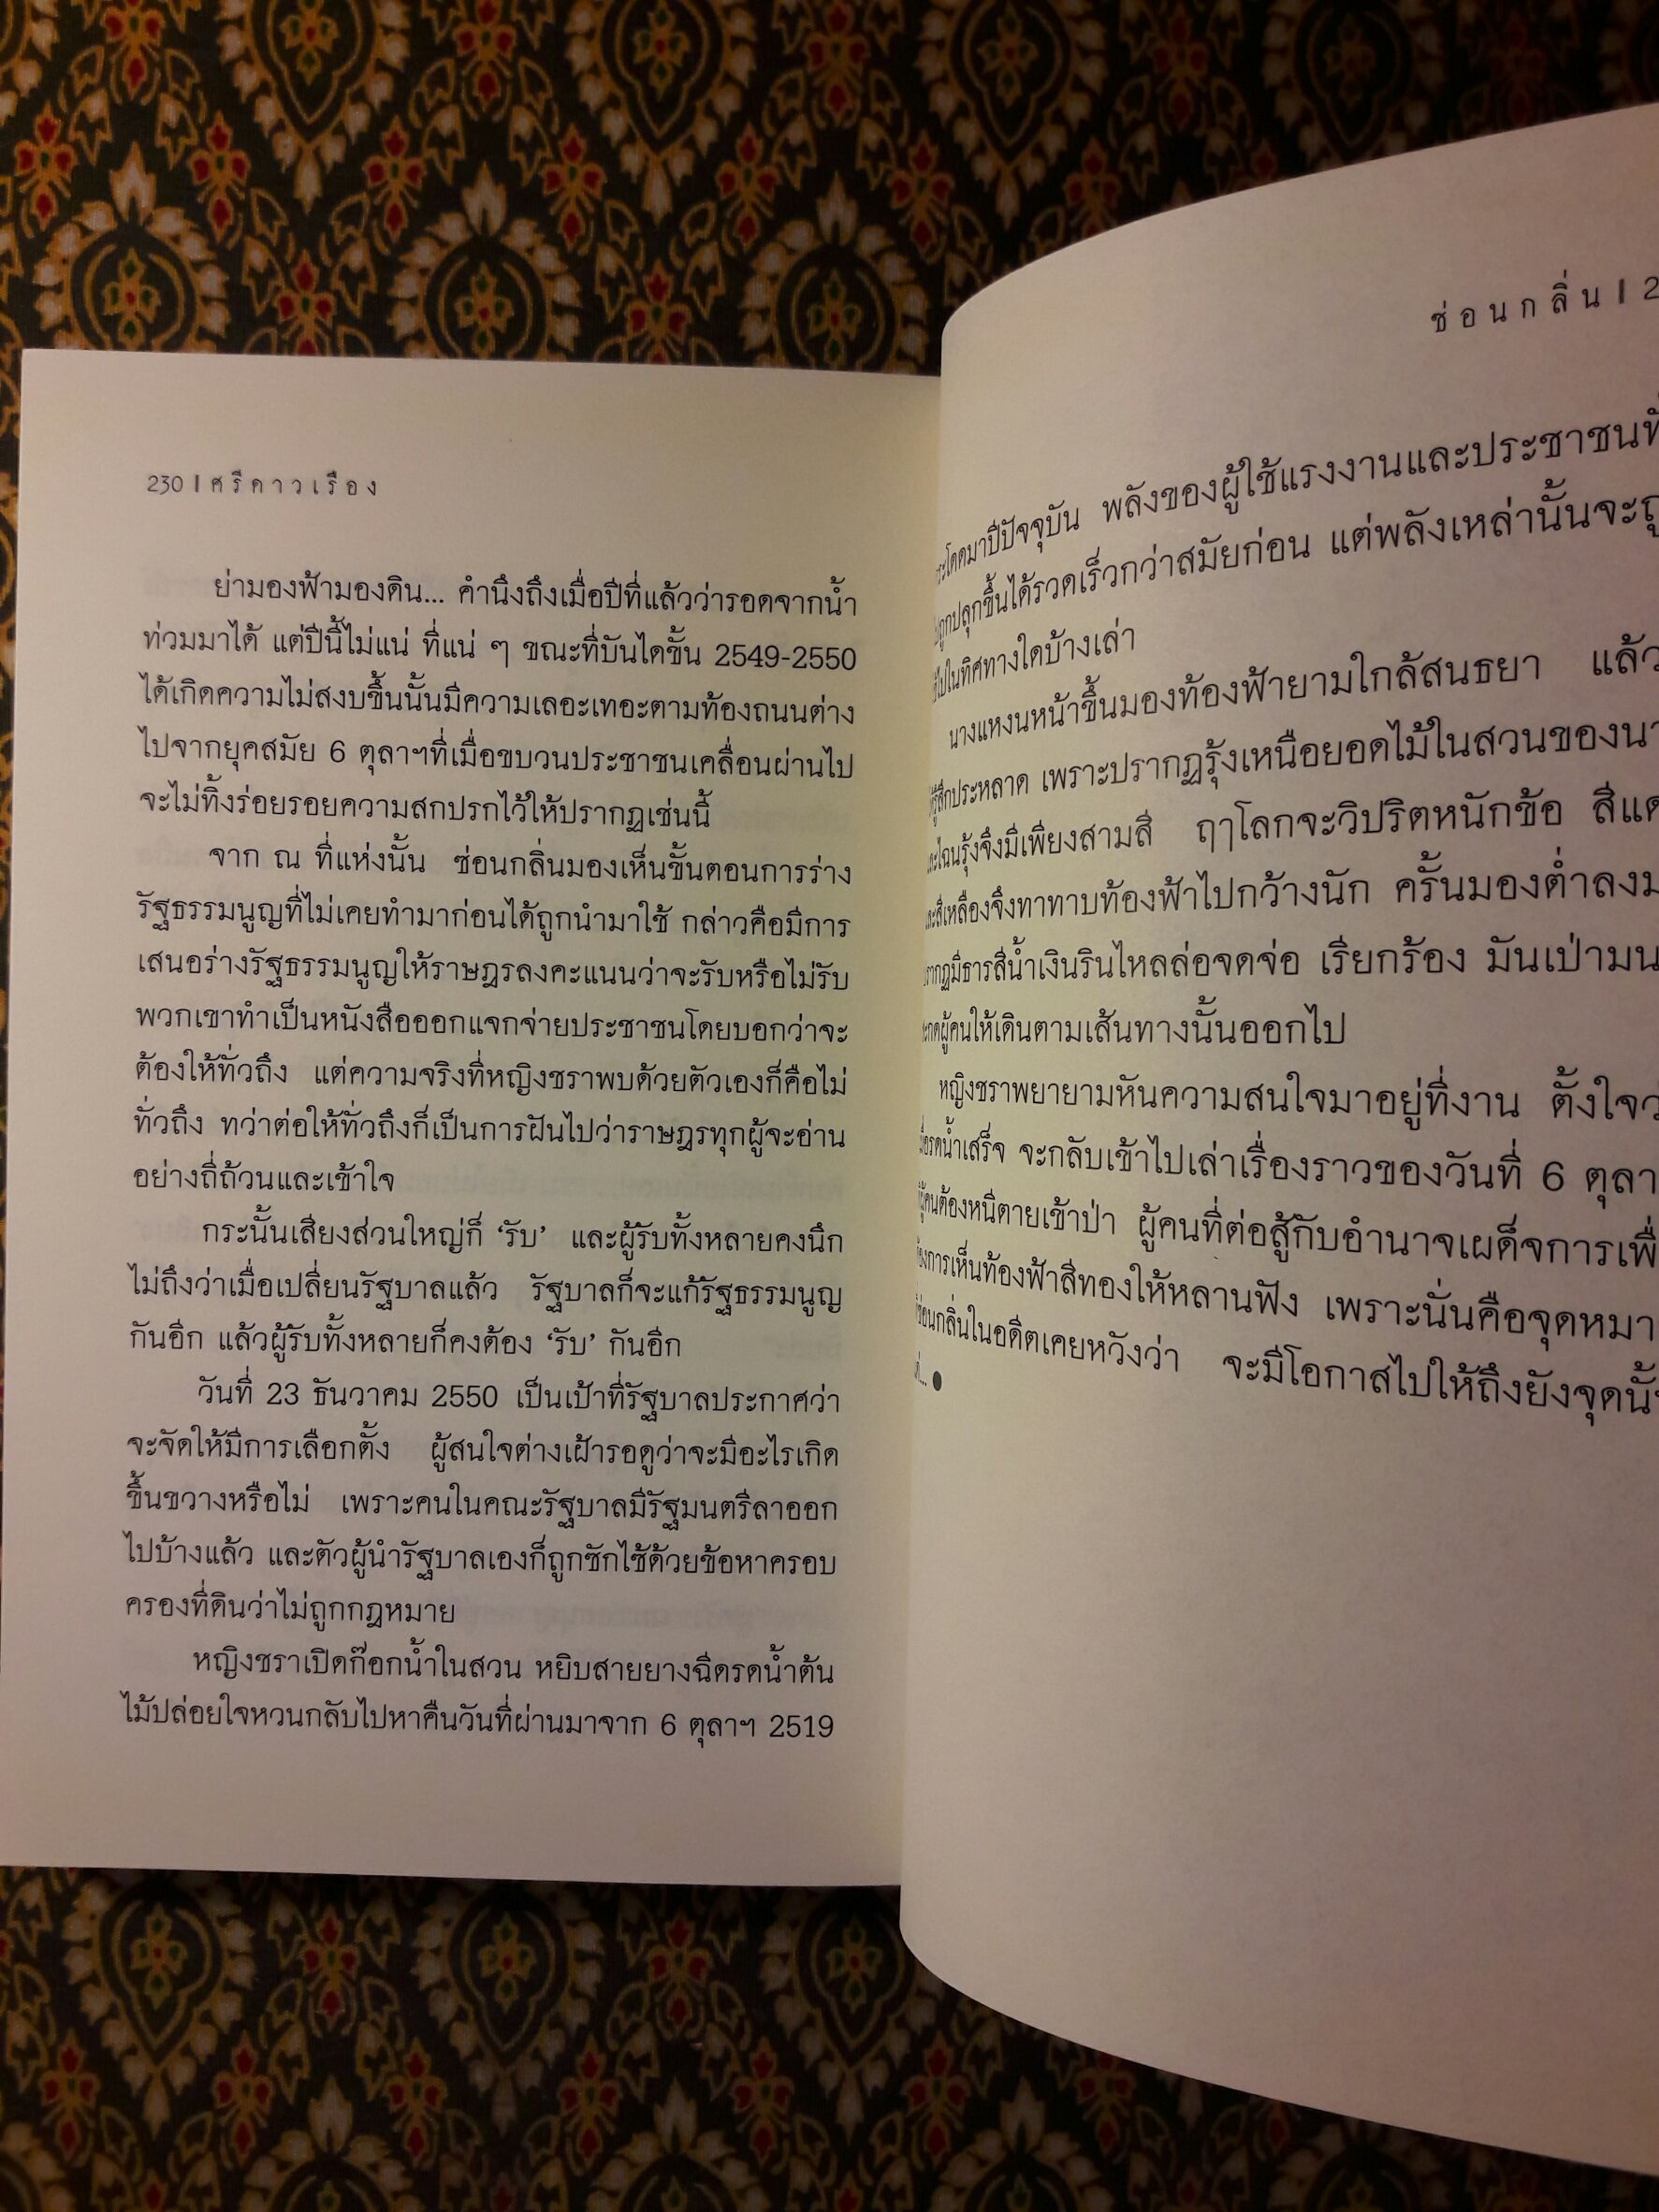 230 | ศรีดาวเรือง
ย่ามองฟ้ามองดิน... คำนึงถึงเมื่อปีที่แล้วว่ารอดจากน้ำ
ท่วมมาได้ แต่ปีนี้ไม่แน่ ที่แน่ ๆ ขณะที่บันไดขั้น 2549-2550
ได้เกิดความไม่สงบขึ้นนั้นมีความเลอะเทอะตามท้องถนนต่าง
ไปจากยุคสมัย 6 ตุลาฯที่เมื่อขบวนประชาชนเคลื่อนผ่านไป
จะไม่ทิ้งร่อยรอยความสกปรกไว้ให้ปรากฏเช่นนี้
จาก ณ ที่แห่งนั้น ซ่อนกลิ่นมองเห็นขั้นตอนการร่าง
รัฐธรรมนูญที่ไม่เคยทำมาก่อนได้ถูกนำมาใช้ กล่าวคือมีการ
เสนอร่างรัฐธรรมนูญให้ราษฎรลงคะแนนว่าจะรับหรือไม่รับ
พวกเขาทำเป็นหนังสือออกแจกจ่ายประชาชนโดยบอกว่าจะ
ต้องให้ทั่วถึง แต่ความจริงที่หญิงชราพบด้วยตัวเองก็คือไม่
ทั่วถึง ทว่าต่อให้ทั่วถึงก็เป็นการฝันไปว่าราษฎรทุกผู้จะอ่าน
อย่างถี่ถ้วนและเข้าใจ
กระนั้นเสียงส่วนใหญ่ก็ ‘รับ’ และผู้รับทั้งหลายคงนึก
ไม่ถึงว่าเมื่อเปลี่ยนรัฐบาลแล้ว รัฐบาลก็จะแก้รัฐธรรมนูญ
กันอีก แล้วผู้รับทั้งหลายก็คงต้อง ‘รับ’ กันอีก
วันที่ 23 ธันวาคม 2550 เป็นเป้าที่รัฐบาลประกาศว่า
จะจัดให้มีการเลือกตั้ง ผู้สนใจต่างเฝ้ารอดูว่าจะมีอะไรเกิด
ขึ้นขวางหรือไม่ เพราะคนในคณะรัฐบาลมีรัฐมนตรีลาออก
ไปบ้างแล้ว และตัวผู้นำรัฐบาลเองก็ถูกซักไซ้ด้วยข้อหาครอบ
ครองที่ดินว่าไม่ถูกกฎหมาย
หญิงชราเปิดก๊อกน้ำในสวน หยิบสายยางฉีดรดน้ำต้น
ไม้ปล่อยใจหวนกลับไปหาคืนวันที่ผ่านมาจาก 6 ตุลาฯ 2519
ซ่อนกลิ่น | 2
มาปีปัจจุบัน พลังของผู้ใช้แรงงานและประชาชน
ถูกปลุกขึ้นได้รวดเร็วกว่าสมัยก่อน แต่พลังเหล่านั้นจะ
ไปในทิศทางใดบ้างเล่า
นางแหงนหน้าขึ้นมองท้องฟ้ายามใกล้สนธยา แล้ว
รู้สึกประหลาด เพราะปรากฏรุ้งเหนือยอดไม้ในสวนของ
ไฉนรุ้งจึงมีเพียงสามสี ฤๅโลกจะวิปริตหนักข้อ
สีเหลืองจึงทาทาบท้องฟ้าไปกว้างนัก ครั้นมองต่ำลง
มีธารสีน้ำเงินรินไหลล่อจดจ่อ เรียกร้อง มันเป่ามน
ผู้คนให้เดินตามเส้นทางนั้นออกไป
หญิงชราพยายามหันความสนใจมาอยู่ที่งาน ตั้งใจ
รดน้ำเสร็จ จะกลับเข้าไปเล่าเรื่องราวของวันที่ 6 ตุลา
ผู้คนต้องหนีตายเข้าป่า ผู้คนที่ต่อสู้กับอำนาจเผด็จการ
ต้องการเห็นท้องฟ้าสีทองให้หลานฟัง เพราะนั่นคือจุดหมา
ซ่อนกลิ่นในอดีตเคยหวังว่า จะมีโอกาสไปให้ถึงยังจุด